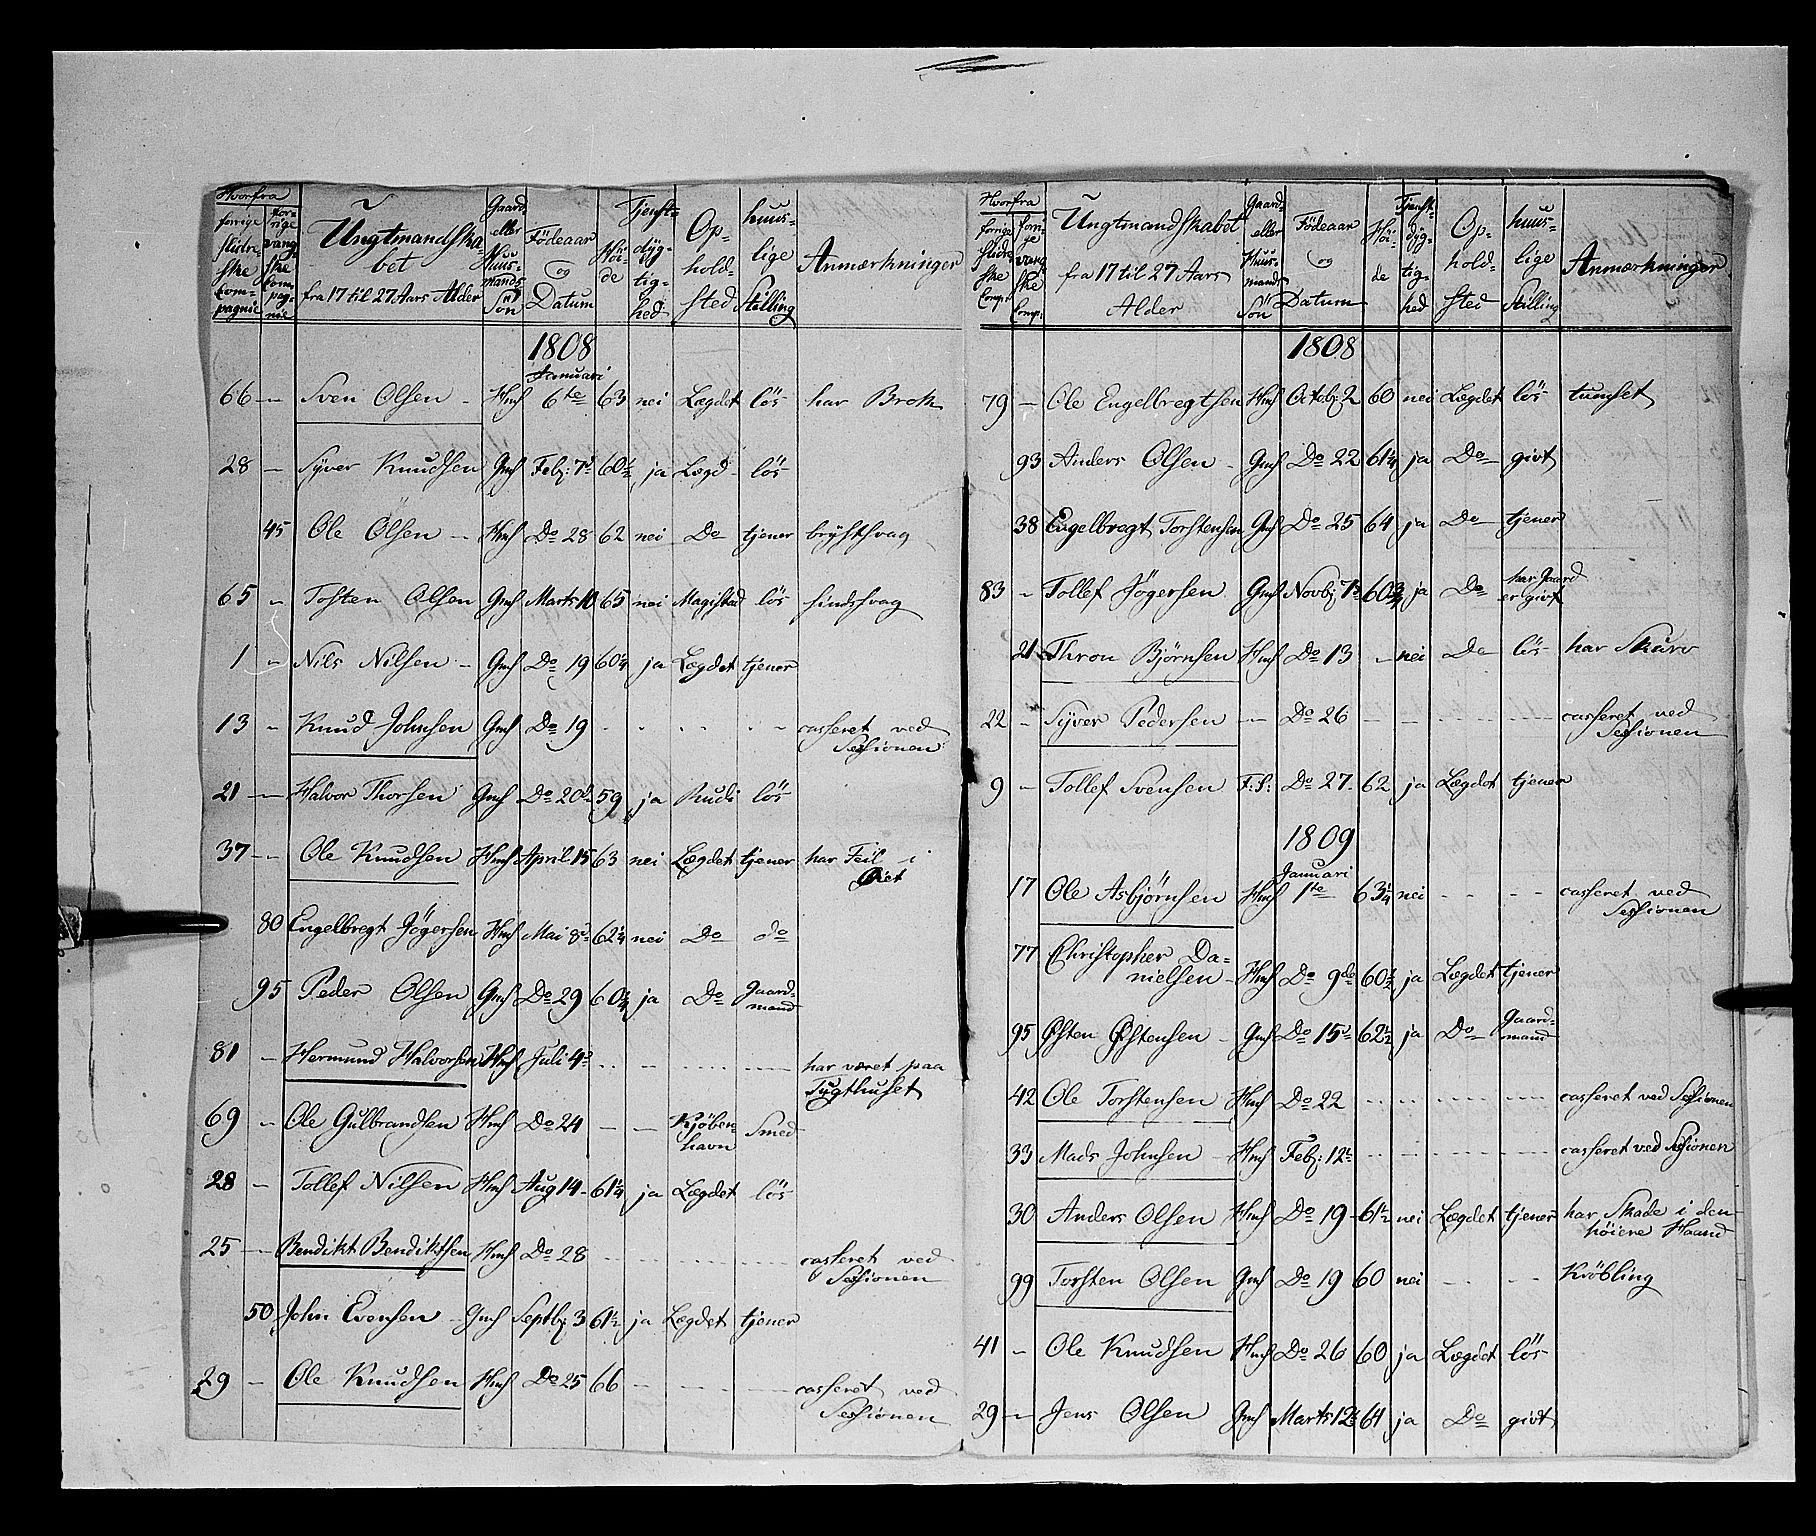 Hvorfra
forrige Slidreske Compagnie | forrige vangske Compagnie | Ungtmandskabet fra 17 til 27 Aars Alder | Gaard eller Huusmands Sön | Födeaar og Datum | Höide | Tjenstdygtighed | Opholdsted | huuslige Stilling | Anmærkninger
1808
Januari
66 — Sven Olsen - Hms 6te 63 nei Lægdet lös har Brok
28 — Syver Knudsen Gms Feb: 7d 60½ ja Lægd lös
45 Ole Olsen - Hms Do 28 62 nei Do tjener brystsvag
65 - Tosten Olsen Gms Marts 10 65 nei Magistad lös sindssvag
1 - Nils Nilsen - Gms Do 19 60¼ ja Lægdet tjener
13 - Knud Johnsen Gms Do 19 - - - - casseret ved
Sessionen
21 — Halvor Thorsen Gms Do 20d 59 ja Rudi lös
37 - Ole Knudsen Hms April 15 63 nei Lægdet tjener har Feil i
Öiet
80 Engelbregt Jögersen Hms Mai 8d 62¼ nei Do do
95 Peder Olsen Gms Do 29 60¾ ja Do Gaard-
mand
81 - Hermund Halvorsen Hms Juli 4d - - - - har været paa
Tugthuset
69 - Ole Gulbrandsen Hms Do 24 - - Kjöben- Smed
havn
28 - Tollef Nilsen Hms Aug 14 - 61¼ ja Lægdet lös
25 - Bendikt Bendiktsen Hms Do 28 - - - - casseret ved
Sessionen
50 John Evensen - Gms Septb: 3 61½ ja Lægdet tjener
29 - Ole Knudsen Hms Do 25 66 - - - casseret ved
Sessionen
Hvorfra
forrige Slidreske Comp: | forrige vangske Comp: | Ungtmandskabet fra 17 til 27 Aars Alder | Gaard eller Huusmands Sön | Födeaar og Datum | Höide | Tjenstdygtighed | Opholdsted | huuslige Stilling | Anmærkninger
1808
79 - Ole Engelbregtsen Hms Octob: 2 60 nei Lægdet lös tumset
93 Anders Olsen - Gms Do 22 61¼ ja Do givt
38 Engelbregt Torstensen Gms Do 25 64 ja Do tjener
83 - Tollef Jögersen Gms Novb: 7d 60¾ ja Do har Gaard
er givt
21 Thron Björnsen Hms Do 13 - nei Do lös har Skurv
22 - Syver Pedersen - Do 26 - - - - casseret ved
Sessionen
9 - Tollef Svensen F:S: Do 27 - 62 ja Lægdet tjener
1809
Januari
17 Ole Asbjørnsen Hms 1te 63¼ nei - - casseret ved
Sessionen
77 Christopher Da-
nielsen - Hms Do 9de 60½ ja Lægdet tjener
95 Østen Østensen - Gms Do 15d 62½ ja Do Gaard-
mand
42 Ole Torstensen Hms Do 22 - - - - casseret ved Sessionen
33 Mads Johnsen - Hms Feb: 12t - - - - casseret ved Sessionen
30 Anders Olsen Hms Do 19 - 61½ nei Lægdet tjener har Skade i den
höiere Haand
99 Torsten Olsen Gms Do 19 60 nei - - Kröbling
41 - Ole Knudsen Hms Do 26 60 ja Lægdet lös
29 - Jens Olsen Gms Marts 12t 64 ja Do givt